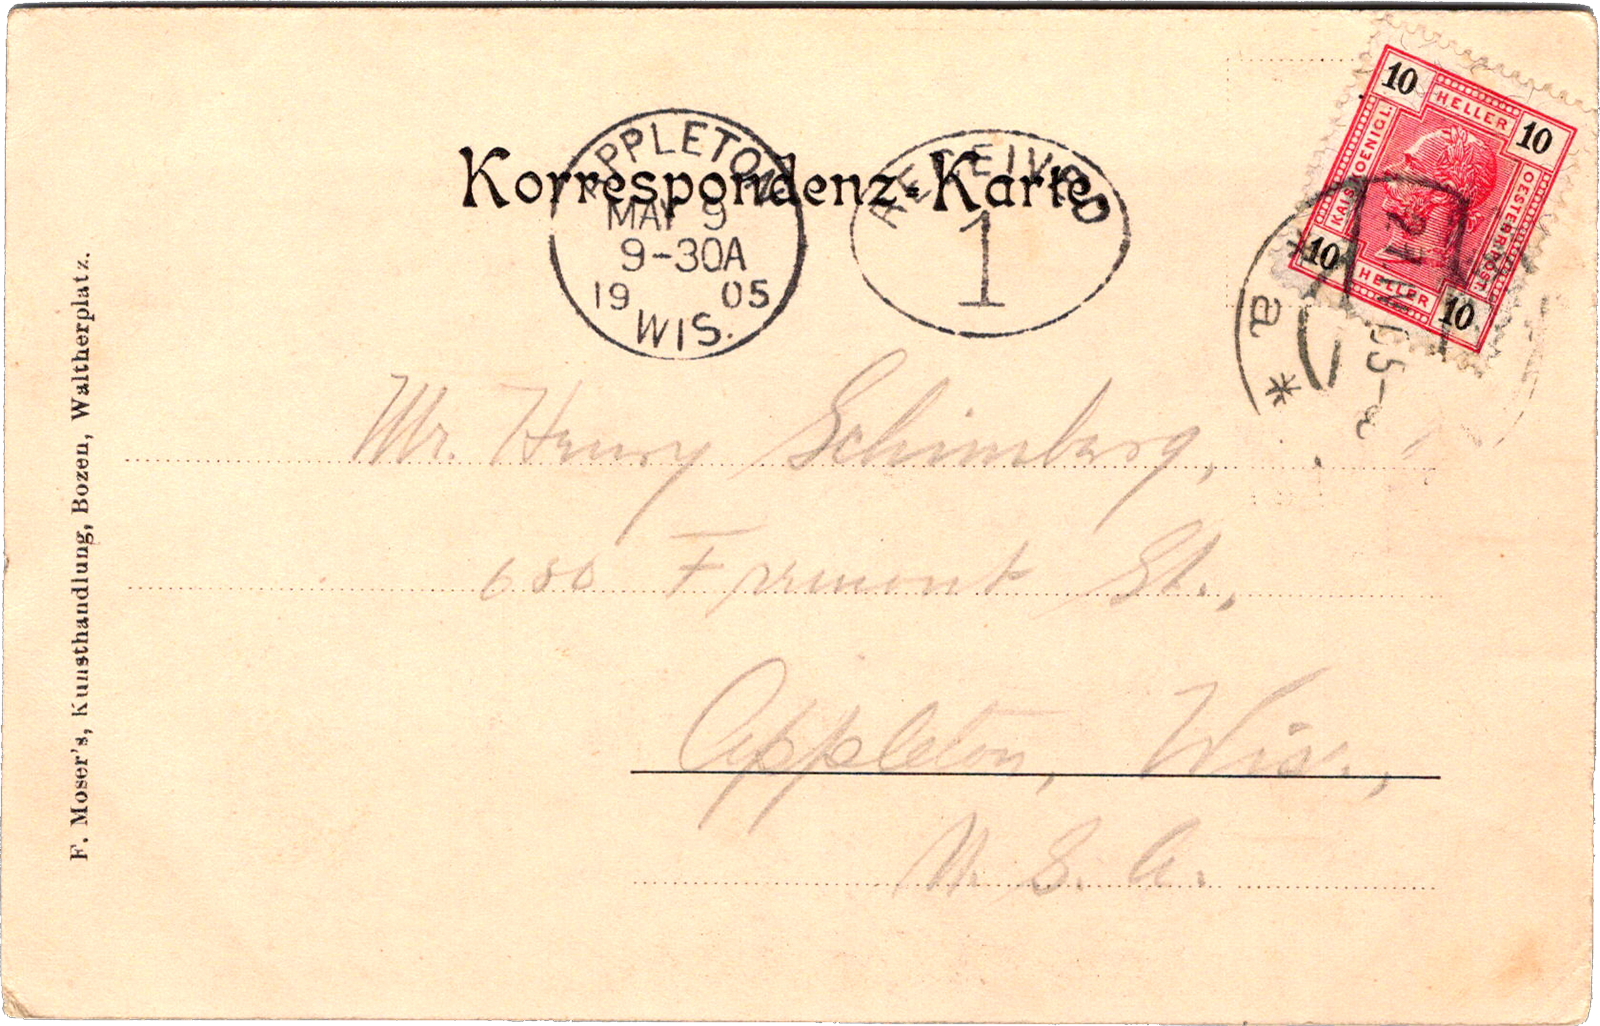 Korrespondenz-Karte
APPLETON
MAY 9
9-30A
19 05
WIS.
RECEIVED
1
10 HELLER 10
KAIS. KOENIGL.
OESTERR. POST.
10 HELLER 10
21
05-8
a
*
Mr. Henry Schimberg,
680 Fremont St.,
Appleton, Wis.,
U. S. A.
F. Moser's, Kunsthandlung, Bozen, Waltherplatz.